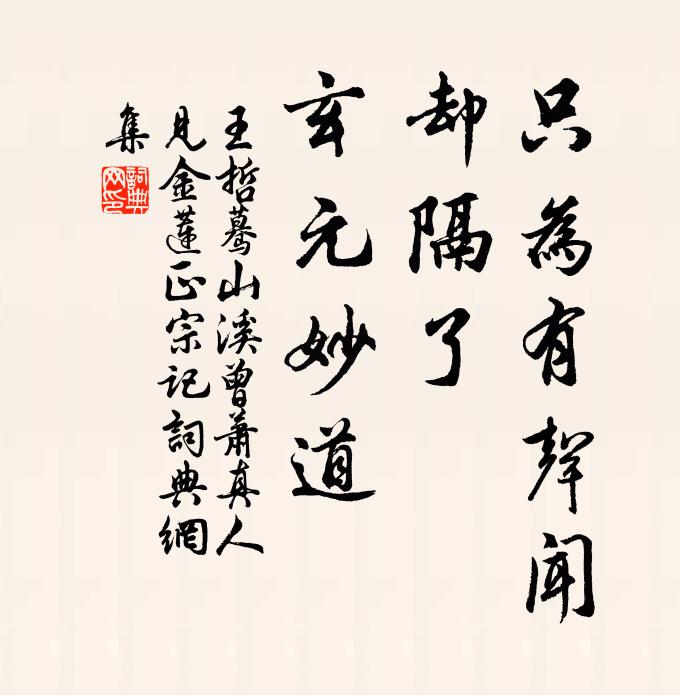 只為有聲聞
却隔了
玄元妙道
王哲驀山溪曾蕭真人
見金蓮正宗記詞典網
集
詞典網印